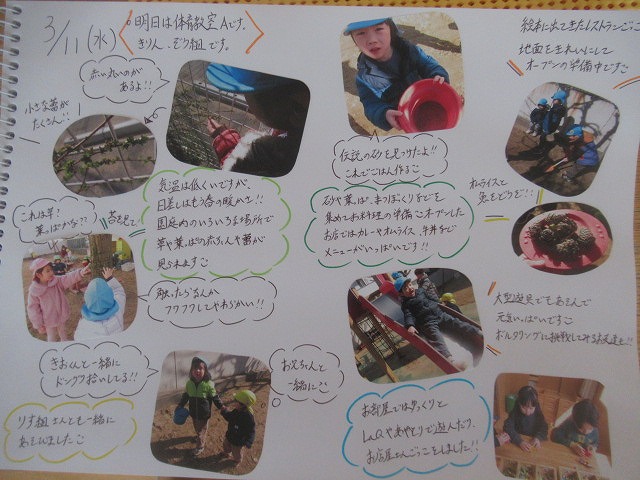 3/11(水)
明日は体育教室Aです。
きりん、ぞう組です。
赤い丸いのが
あるよ!!
小さな蕾が
たくさん!!
気温は低いですが、
日差しはもう春の暖かさ!!
園庭内のいろいろな場所で
草や葉っぱの赤ちゃんや蕾が
見られます
これは芽?
葉っぱかな??
苔を見て
触ったらなんか
フワフワしてやわらかい!!
きおくんと一緒に
ドングリ拾いしてる!!
お兄ちゃんと
一緒に
りす組さんとも一緒に
あそびました
伝説の砂を見つけたよ!!
これでごはん作る
砂や葉っぱ、まつぼっくりなどを
集めてお料理の準備 オープンした
お店ではカレーやオムライス、牛丼など
メニューがいっぱいです!!
絵本に出てきたレストランごっこ
地面をきれいにして
オープンの準備中です
オムライスと
魚をどうぞ!!
大型遊具でもあそんで
元気いっぱいです
ボルダリングに挑戦してみるお友達も!!
お部屋ではゆっくりと
LaQやあやとりで遊んだり、
お店屋さんごっこをしました!!